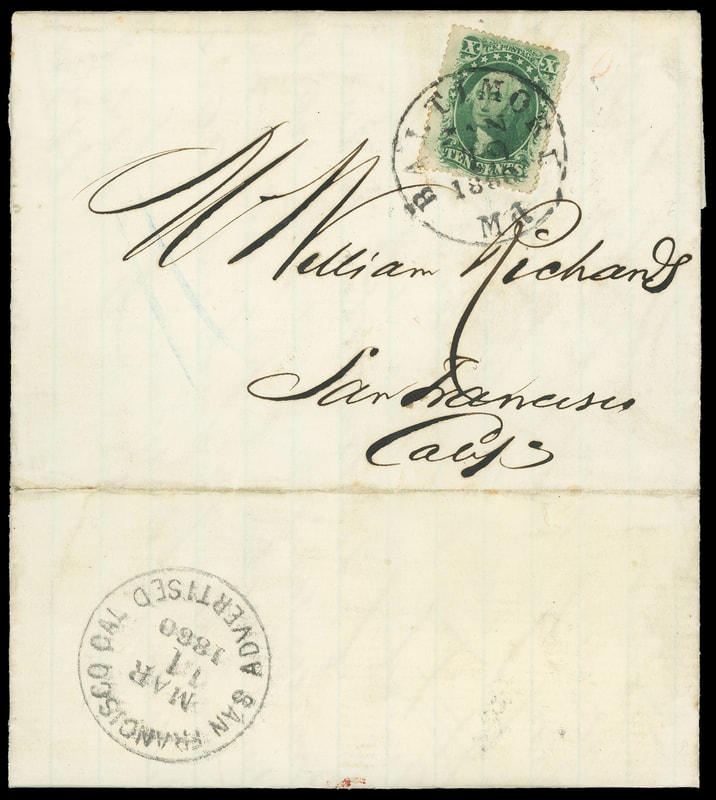 X U.S. POSTAGE X
TEN CENTS
BALTIMORE Md
Mr William Richards
San Francisco
Calif
SAN FRANCISCO CAL ADVERTISED
MAR
1860